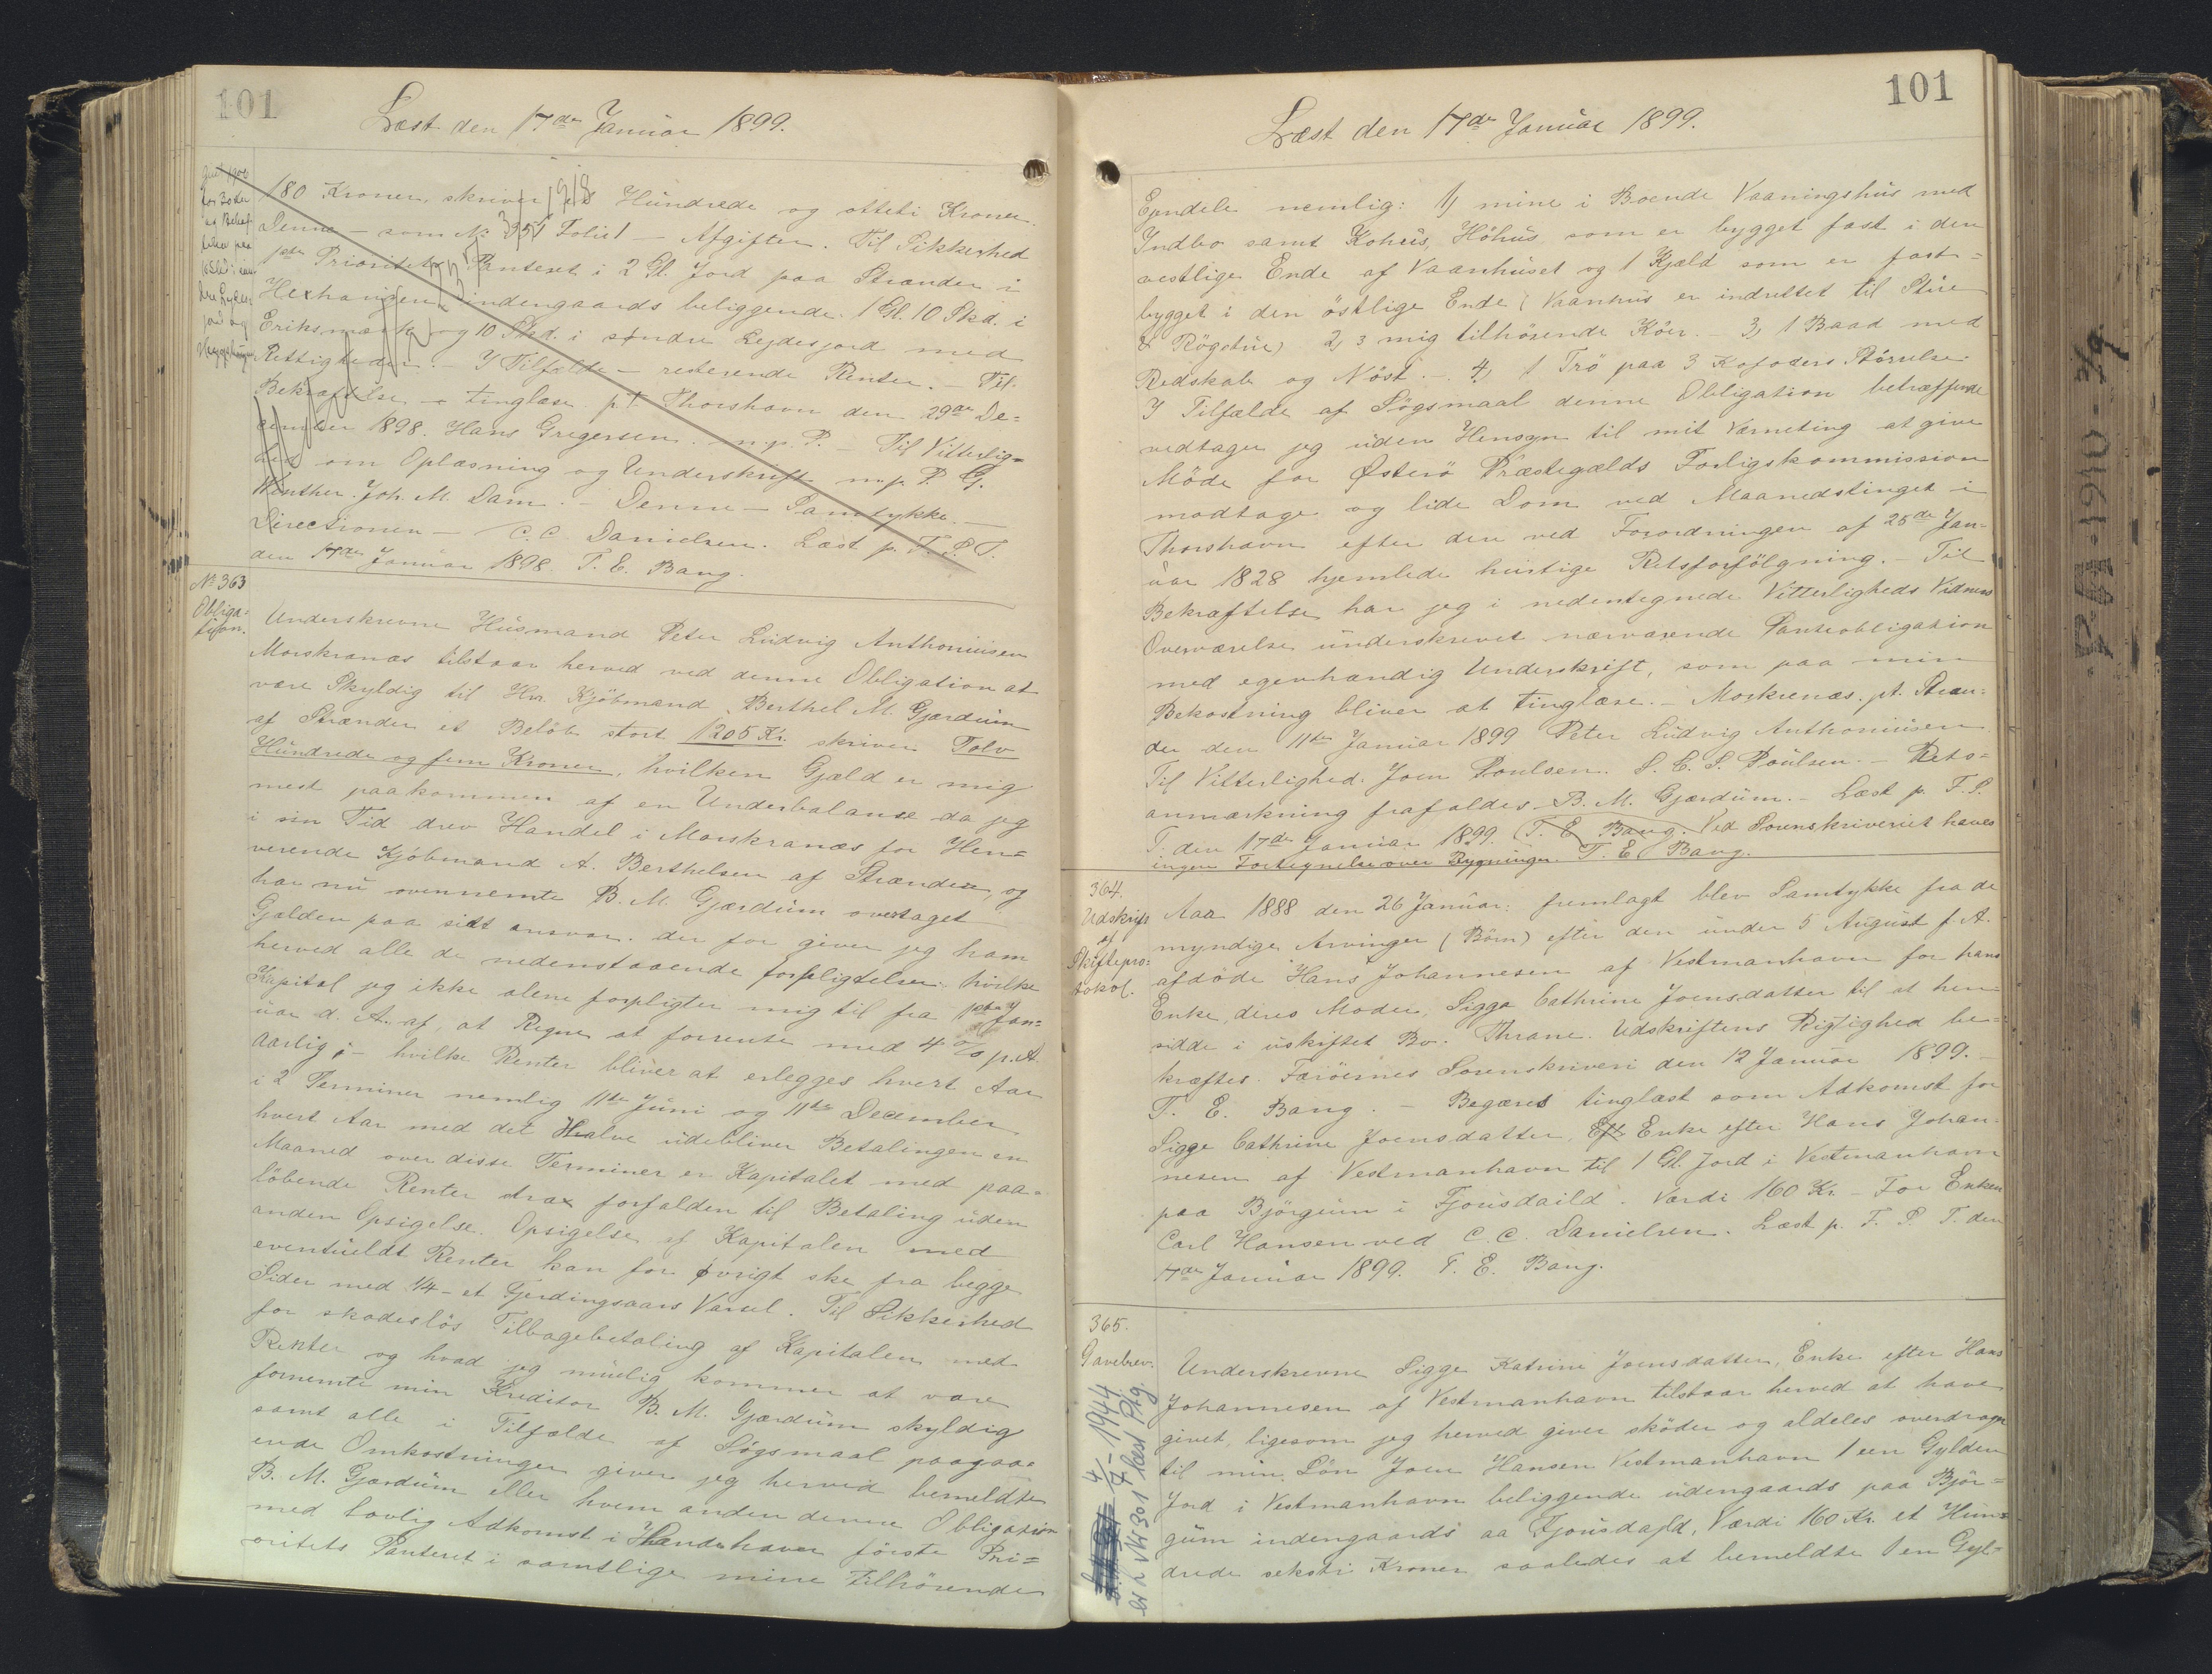 101
Læst den 17de Januar 1899.
180 Kroner, skriver Hundrede og otteti Kroner.
Denne - som № 351 Folio 1 - Afgifter. Til Sikkerhed
1ste Prioritets Panteret i 2 Gl. Jord paa Strænder i
indengaards beliggende 1 Gl. 10 Skd. i
Eriksmærk og 10 Skd. i søndre Lejdesjord med
Rettigheder. - I Tilfælde - resterende Renter. - Til
Bekræftelse - tinglæse. p.t. Thorshavn den 29de De=
cember 1898. Hans Gregersen. m.p.P. - Til Vitterlig=
hed om Oplæsning og Underskrift m.p.P. G.
Winther. Joh. M. Dam. - Denne - Samtykke. -
Directionen - C. C. Danielsen. Læst p. F. S. T.
den 17de Januar 1898. T. E. Bang.
№ 363
Obliga=
tion.
Underskrevne Husmand Peter Ludvig Anthoniusen
Morskranæs tilstaar herved ved denne Obligation at
være Skyldig til Hr. Kjöbmand Berthel M. Gjærdum
af Strænder et Belöb stort 1205 Kr. skriver Tolv
Hundrede og fem Kroner, hvilken Gjæld er mig
mest paakommen af en Underbalanse da jeg
i sin Tid drev Handel i Morskranæs for Hen=
verende Kjöbmand A. Berthelsen af Strænder, og
har nu ovennemte B. M. Gjærdum overtaget
Gjælden paa sitt ansvar. der for giver jeg ham
herved alle de nedenstaaende forpligtelser, hvilke
Kapital jeg ikke alene forpligter mig til fra 1ste Jan=
uar d. A. af, at Regne at forrente med 4 % p. A.
Aarlig; - hvilke Renter bliver at erlegges hvert Aar
i 2 Terminer nemlig 11te Juni og 11te December
hvert Aar med det Halve udebliver Betalingen en
Maaned over disse Terminer er Kapitalet med paa=
löbende Renter strax forfalden til Betaling uden
anden Opsigelse. Opsigelse af Kapitalen med
eventueldt Renter kan for øvrigt ske fra begge
Sider med 1/4 - et Fjerdingsaars Varsel. Til Sikkerhed
for skadeslös Tilbagebetaling af Kapitalen med
Renter og hvad jeg muelig kommer at være
fornemte min Kreditor B. M. Gjærdum skyldig
samt alle i Tilfælde af Søgsmaal paagaa=
ende Omkostninger giver jeg herved bemeldte
B. M. Gjærdum eller hvem anden denne Obligation
med lovlig Adkomst i Hænde haver förste Pri=
oritets Panteret i samtlige mine Tilhörende
101
Læst den 17de Januar 1899.
Ejendele nemlig: 1) mine i Boende Vaaningshus med
Indbo samt Kohus, Höhus som er bygget fast i den
vestlige Ende af Vaanhuset og 1 Kjæld som er fast=
bygget i den östlige Ende (Vaanhus er indrettet til Stue
& Rögstue) 2, 3 mig tilhörende Köer. - 3, 1 Baad med
Redskab og Nöst. - 4, 1 Trö paa 3 Kofoders Störrelse.
I Tilfælde af Sögsmaal denne Obligation betræffende
vedtager jeg uden Hensyn til mit Værneting at give
Möde for Østerö Præstegælds Forligskommission
modtage og lide Dom ved Maanedstinget i
Thorshavn efter den ved Forordningen af 25de Jan=
uar 1828 hjemlede hurtige Retsforfölgning. - Til
Bekræftelse har jeg i nedentegnede Vitterligheds Vidners
Overværelse underskrevet nærværende Panteobligation
med egenhændig Underskrift, som paa min
Bekostning bliver at tinglæse. - Morkrenæs. pt. Stræn=
der den 11te Januar 1899 Peter Ludvig Anthoniusen
Til Vitterlighed. Joen Poulsen. S. C. S. Poulsen. - Rets=
anmærkning frafaldes. B. M. Gjærdum. - Læst p. F. S.
T. den 17de Januar 1899. T. E. Bang. Ved Sorenskriveriet haves
ingen Fortegnelse over Bygninger. T. E. Bang.
364.
Udskrift
af
Skiftepro=
tokol.
Aar 1888 den 26 Januar: fremlagt blev Samtykke fra de
myndige Arvinger (Börn) efter den under 5 August f. A.
afdöde Hans Johannesen af Vestmanhavn for hans
Enke, deres Moder, Sigge Cathrine Joensdatter til at hen=
sidde i uskiftet Bo. Thrane. Udskriftens Rigtighed be=
kræftes. Færöernes Sorenskriveri den 12 Januar 1899. -
T. E. Bang. - Begæres tinglæst som Adkomst for
Sigge Cathrine Joensdatter, Eft Enke efter Hans Johan=
nesen af Vestmanhavn til 1 Gl. Jord i Vestmanhavn
paa Björgum i Fjousdaild. Værdi 160 Kr. - For Enken
Carl Hansen ved C. C. Danielsen. Læst p. F. S. T. den
17de Januar 1899. T. E. Bang.
365.
Gavebrev.
Underskrevne Sigge Katrine Joensdatter, Enke efter Hans
Johannesen af Vestmanhavn tilstaar herved at have
givet, ligesom jeg herved giver sköder og aldeles overdrager
til min Sön Joen Hansen Vestmanhavn 1 een Gylden
Jord i Vestmanhavn beliggende udengaards paa Björ=
gum indengaards aa Fjousdajld, Værdi 160 Kr. et Hun=
drede seksti Kroner saaledes at bemeldte 1 en Gyl=
4/7-1944
er № 301 læst Ptg.